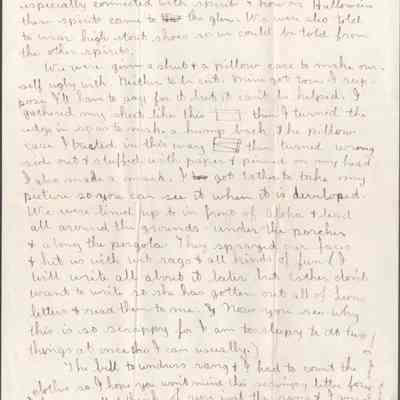 especially connected with spirit & how on Hallowe'en
these spirits come to the glen. We were also told
to wear high stout shoes so we could be told from
the other spirits.
We were given a sheet & a pillow case to make our-
self ugly with. Neither to be cut. Mine got torn I sup-
pose I'll have to pay for it but it can't be helped. I
gathered my sheet like this then I turned the
edge in so as to make a hump back. The pillow
case I basted in this way then turned wrong
side out & stuffed with paper & pinned on my head.
I also made a mask. I got Esther to take my
picture so you can see it when it is developed.
We were lined up to in front of Aloha & lead
all around the grounds - under the porches
& along the pergola. They sprayed our faces
& hit us with wet rags & all kinds of fun (I
will write all about it later but Esther don't
want to write so she has gotten out all of her
letters & read them to me. & Now you see why
this is so scrappy for I am to sleepy to do two
things at once tho I can usually.)
The bell to undress rang & I had to count the
clothes so I hope you won't mind the